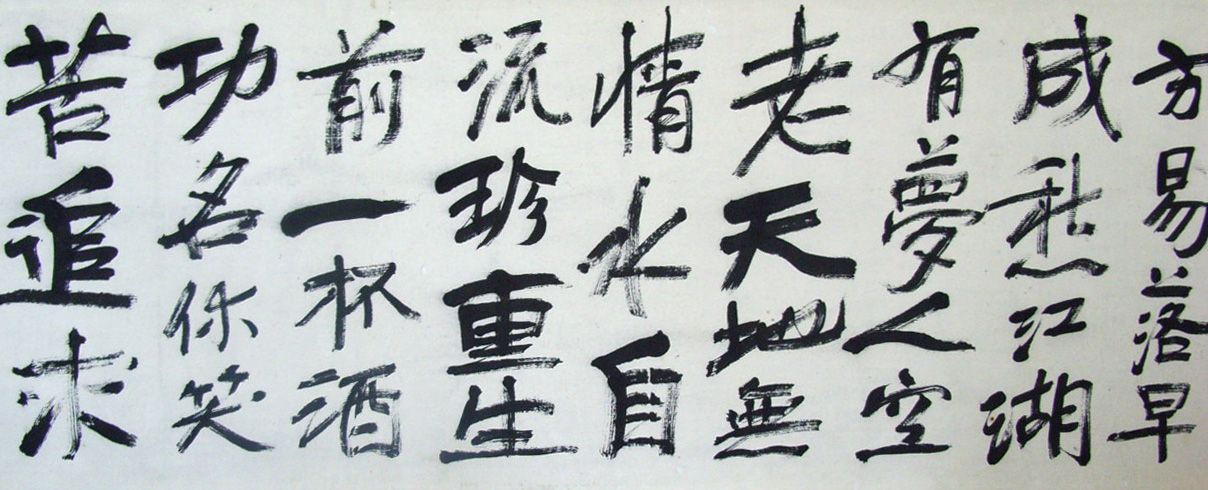 芳易落早
成愁江湖
有夢人空
老天地無
情水自
流珍重生
前一杯酒
功名休笑
苦追求